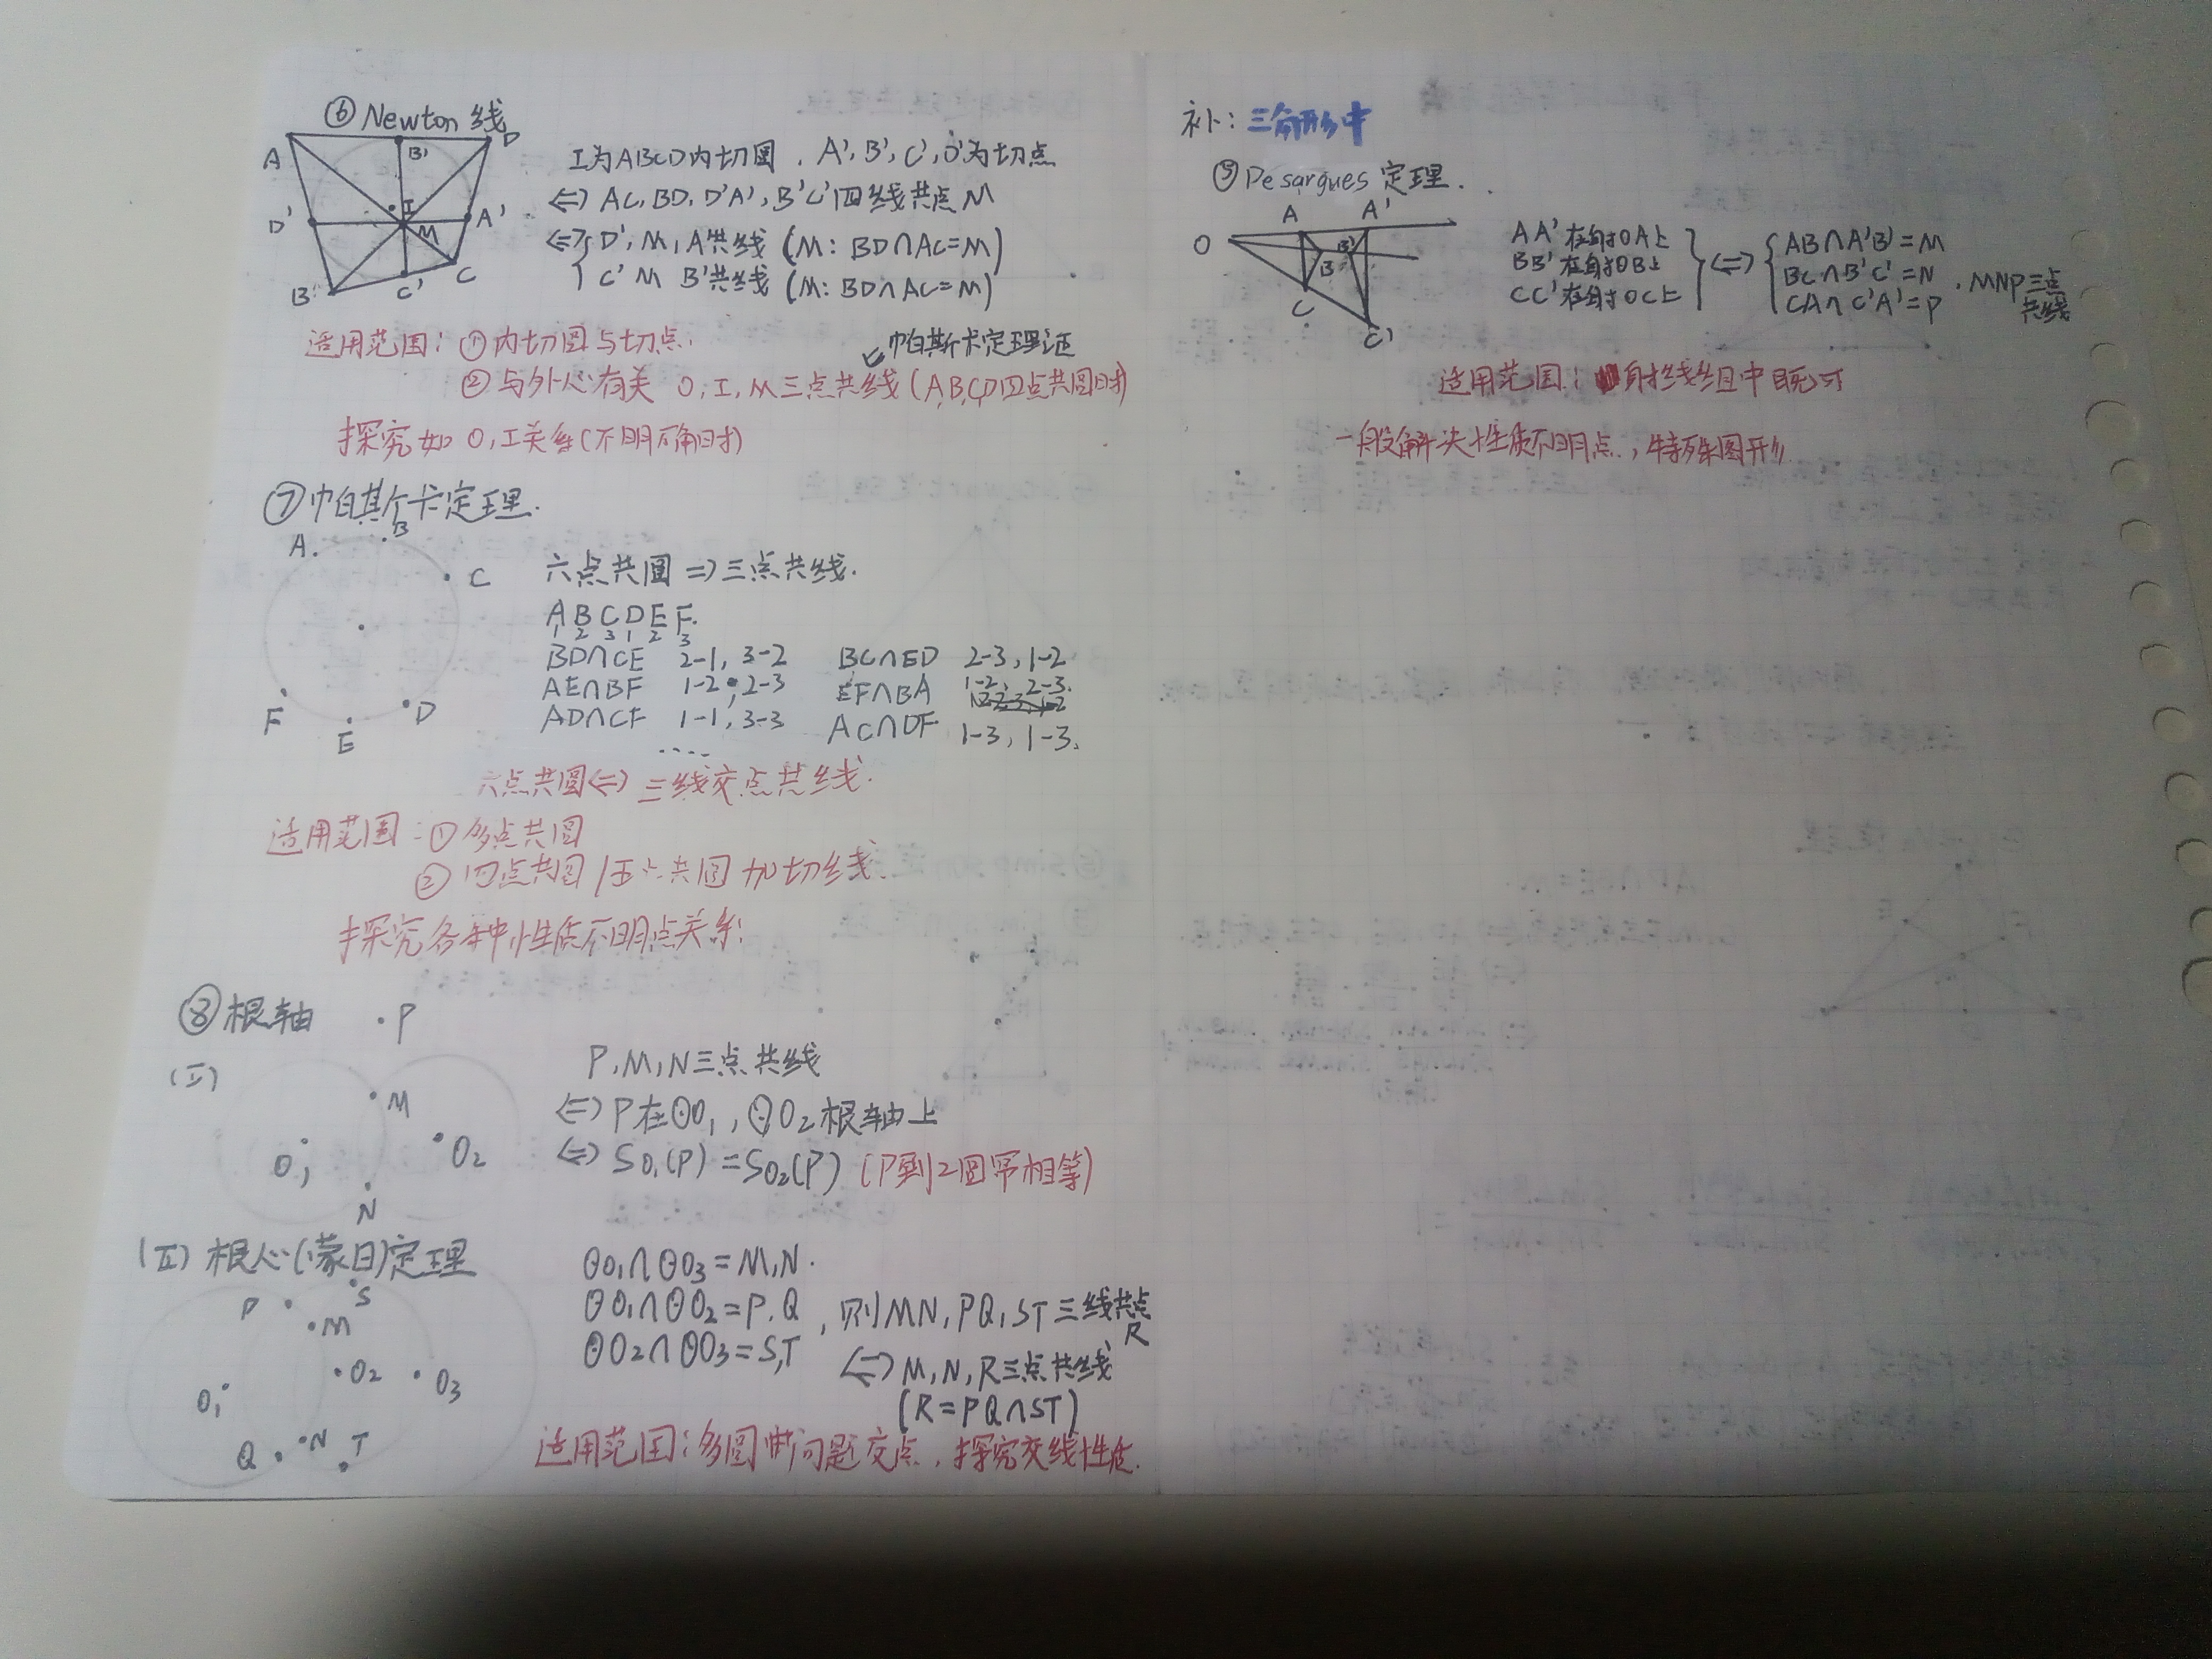 ⑥ Newton 线
A B' D
D' I M A'
B C' C
I为ABCD内切圆，A',B',C',D'为切点
⇔ AC, BD, D'A', B'C'四线共点M
⇔ { D', M, A'共线 (M: BD∩AC=M)
C' M B'共线 (M: BD∩AC=M)
适用范围：①内切圆与切点.
↙帕斯卡定理证
②与外心有关 O, I, M三点共线(A,B,C,D四点共圆时)
探究如 O, I关系(不明确时)
⑦帕斯卡定理.
A B
C
F E D
六点共圆⇒三点共线.
A B C D E F.
1 2 3 1 2 3
BD∩CE 2-1, 3-2 BC∩ED 2-3, 1-2
AE∩BF 1-2, 2-3 EF∩BA 1-2, 2-3.
AD∩CF 1-1, 3-3 AC∩DF 1-3, 1-3.
....
六点共圆⇔三线交点共线.
适用范围：①多点共圆
②四点共圆/五点共圆 加切线.
探究各种性质不明点关系.
⑧根轴
P
(I)
M
O₁ O₂
N
P, M, N三点共线
⇔P在⊙O₁, ⊙O₂根轴上
⇔ S O₁(P) = S O₂(P) (P到2圆幂相等)
(II) 根心(蒙日)定理
P S
M
O₁ O₂ O₃
Q N T
⊙O₁∩⊙O₃=M,N.
⊙O₁∩⊙O₂=P,Q, 则MN, PQ, ST三线共点
R
⊙O₂∩⊙O₃=S,T
⇔M, N, R三点共线
(R=PQ∩ST)
适用范围：多圆 问题交点，探究交线性质.
补：三角形中
⑤Desargues 定理.
A A'
O B B'
C
C'
AA'在射OA上
BB'在射OB上
CC'在射OC上
⇔
AB∩A'B'=M
BC∩B'C'=N
CA∩C'A'=P
, MNP三点
共线
适用范围：射线组中既可
一般解决性质不明点，特殊图形.